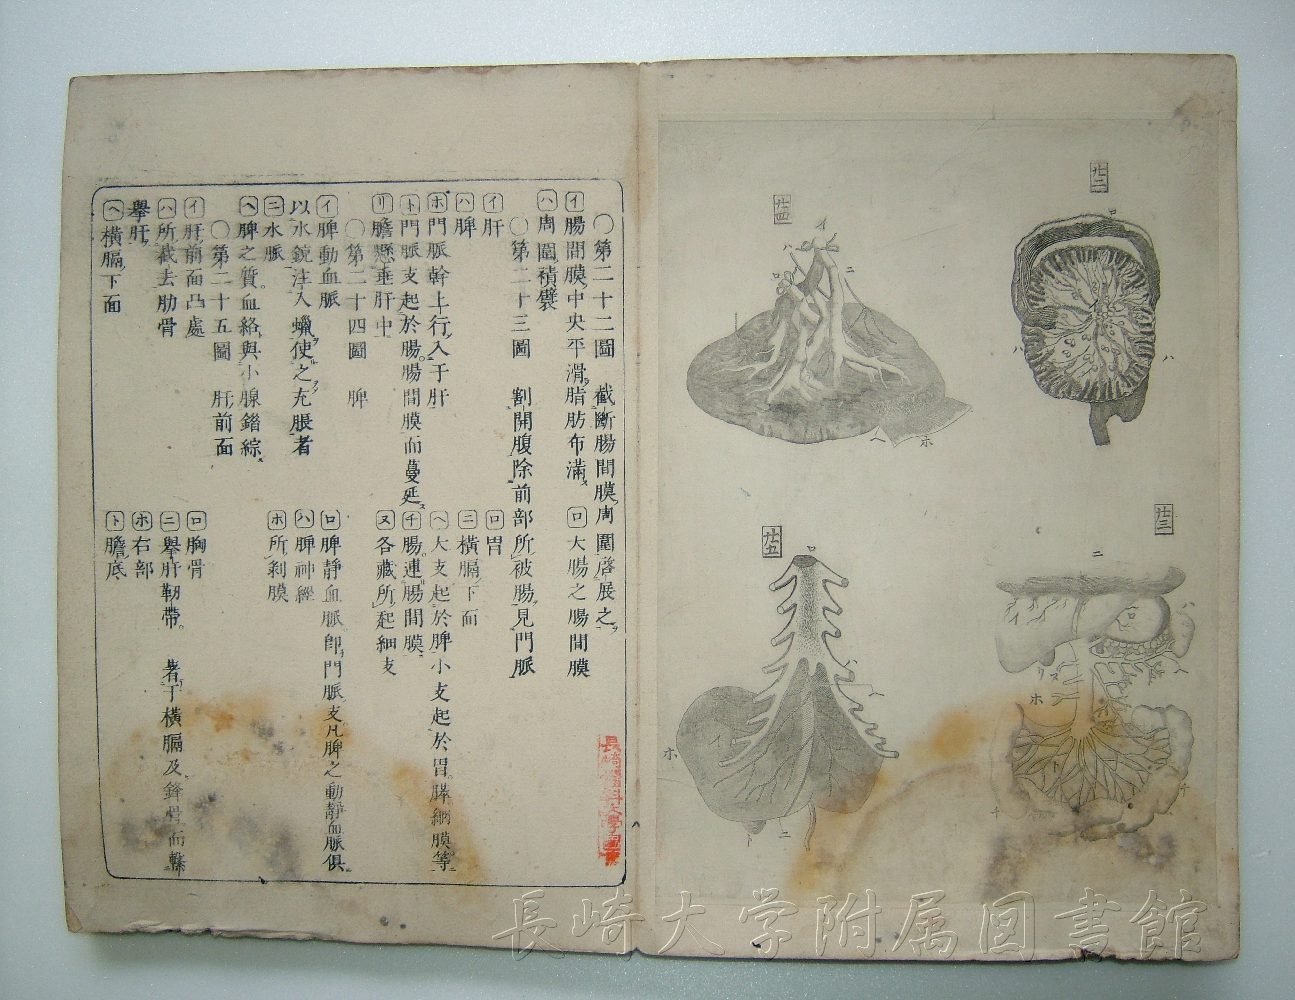 〇第二十二圖　截斷腸間膜周圍啓展之
イ腸間膜中央平滑脂肪布滿　ロ大腸之腸間膜
ハ周圍積襞
〇第二十三圖　割開腹除前部所被腸見門脈
イ肝　ロ胃
ハ脾　ニ横膈下面
ホ門脈幹上行入于肝　ヘ大支起於脾小支起於胃膵網膜等
ト門脈支起於腸腸間膜而蔓延　チ腸連腸間膜
リ膽懸垂肝中　ヌ各藏所起細支
〇第二十四圖　脾
イ脾動血脈　ロ脾静血脈即門脈支凡脾之動静血脈俱
以水銃注入蠟使之充脹者　ハ脾神經
ニ水脈　ホ所剥膜
ヘ脾之質血絡與小腺錯綜
〇第二十五圖　肝前面
イ肝前面凸處　ロ胸骨
ハ所截去肋骨　ニ擧肝靭帶　著于横膈及鋒骨而繫
擧肝　ホ右部
ヘ横膈下面　ト膽底
廿二
ロ
イ
ハ
ハ
廿三
ニ
ハ
ロ
イ
ヘ
リ
ヌ
ホ
ト
チ
チ
廿四
イ
ハ
ニ
ロ
ヘ
ホ
廿五
ロ
ハ
イ
ホ
ニ
ト
長崎醫科大學圖書
長崎大学附属図書館